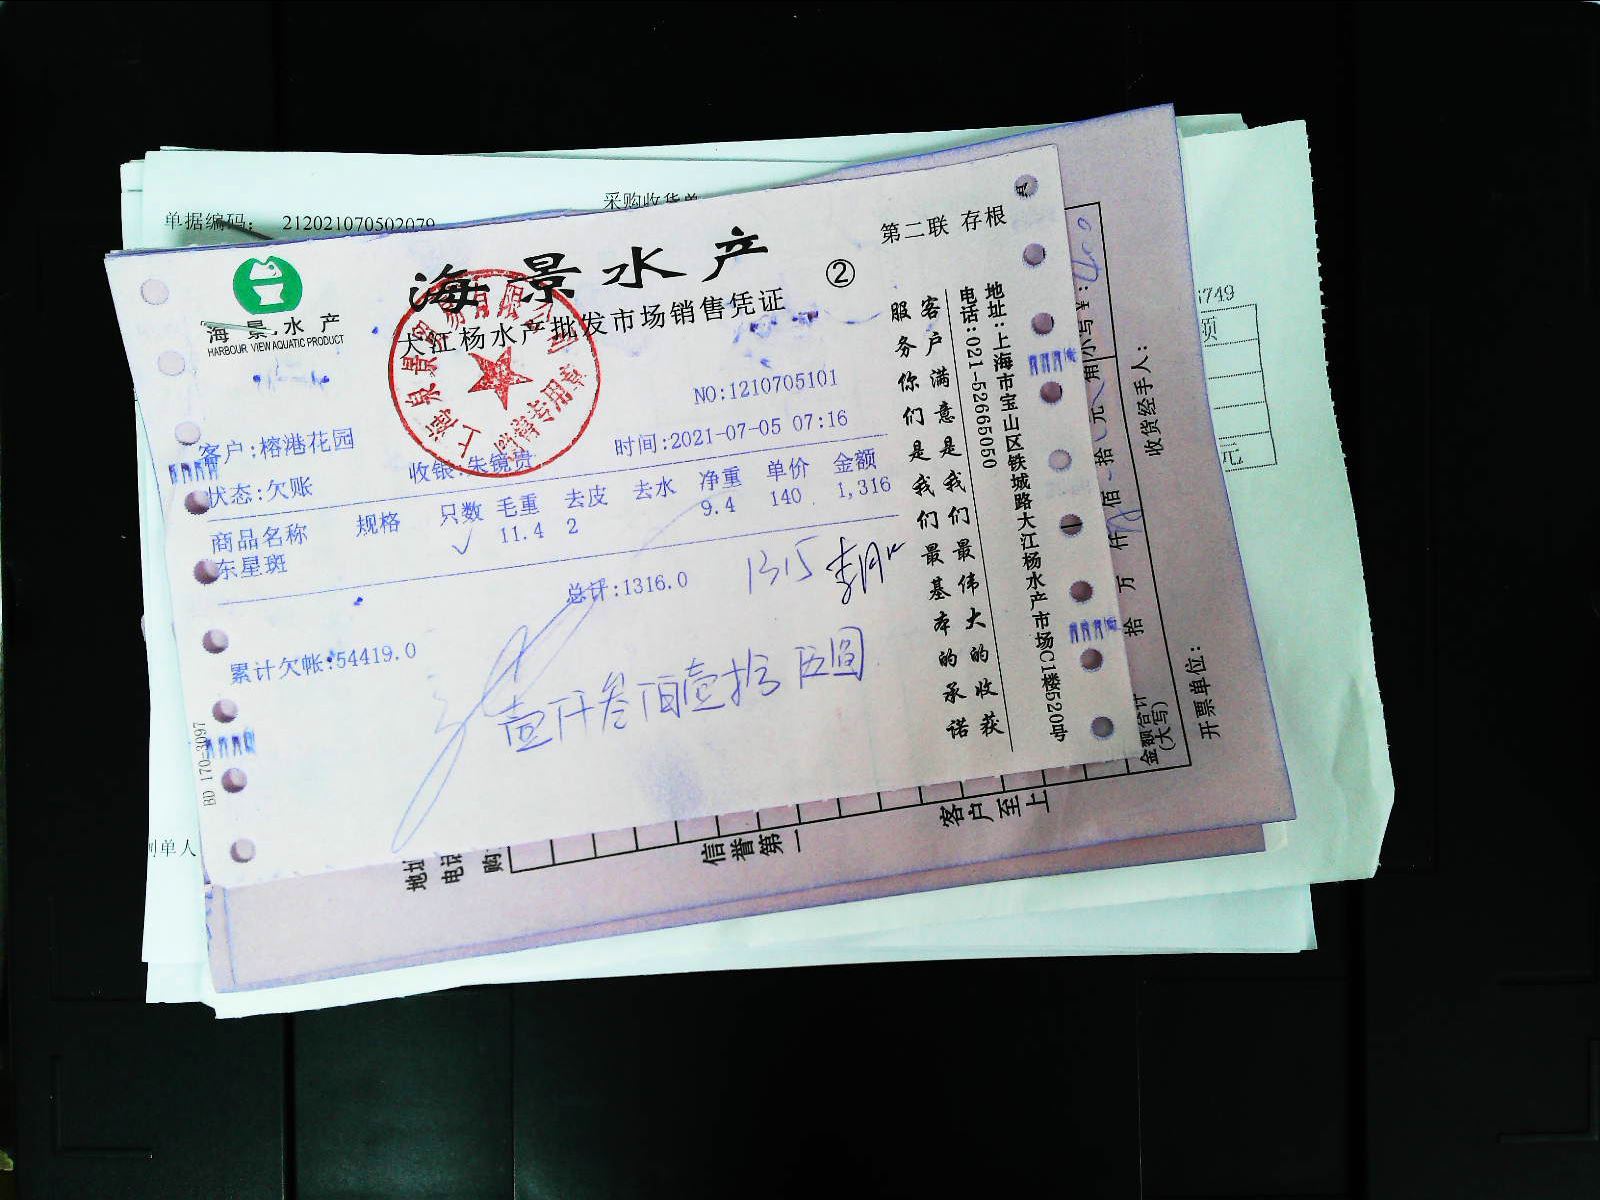 采购收货单
单据编码: 212021070502079
海景水产
HARBOUR VIEW AQUATIC PRODUCT
海景水产
大江杨水产批发市场销售凭证
②
第二联 存根
NO:1210705101
客户:榕港花园
收银:朱镜贵
时间:2021-07-05 07:16
状态:欠账
商品名称 规格 只数 毛重 去皮 去水 净重 单价 金额
东星斑 11.4 2 9.4 140 1,316
总计:1316.0
1315
累计欠帐:54419.0
壹仟叁佰壹拾伍圆
客户满意是我们最伟大的收获
服务你们是我们最基本的承诺
地址:上海市宝山区铁城路大江杨水产市场C1楼520号
电话:021-52665050
BD 170-3097
小写¥:
拾 万 仟 佰 拾 元 角
金额合计
(大写)
收货经手人:
开票单位:
客户至上
信誉第一
地址
电话
购
单人
6749
额
元